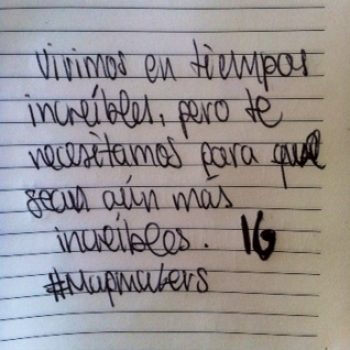 vivimos en tiempos
increíbles, pero te
necesitamos para que
sean aún más
increíbles. 16
#Mapmakers